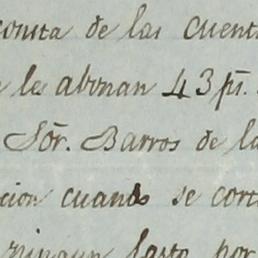 consta de las cuent
le abonan 43 ps.
Sôr. Barros de la
cion cuando se cort
ningun gasto por